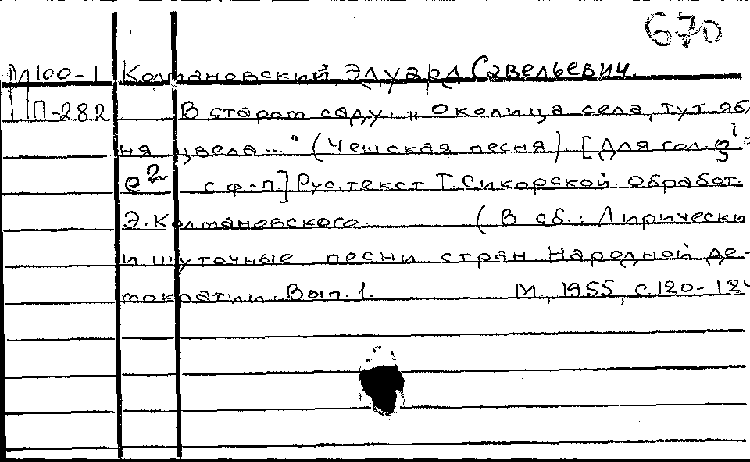 670
М100-1 Колмановский Эдуард Савельевич.
П-282 В старом саду. „Околица села, тут яб
ня цвела..." (Чешская песня). [Для сол. g¹-
e² с ф-п] Рус. текст Т. Сикорской обработ.
Э. Колмановского. (В сб.: Лирически
и шуточные песни стран Народной де-
мократии. Вып. 1. М., 1955, с. 120-124